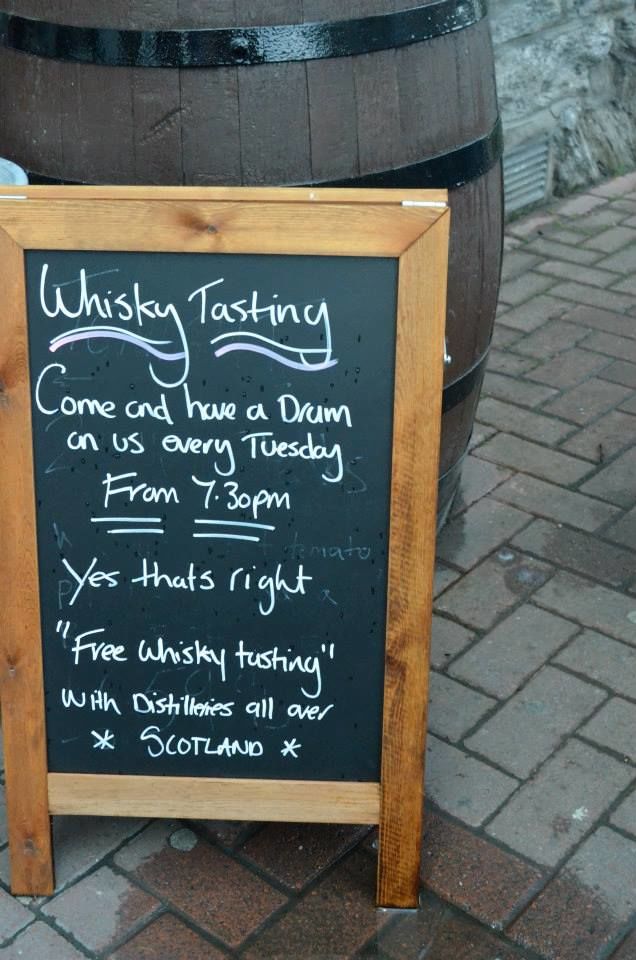 Whisky Tasting
Come and have a Dram
on us every Tuesday
From 7.30pm
Yes thats right
"Free Whisky tasting"
With Distilleries all over
* SCOTLAND *
tomato